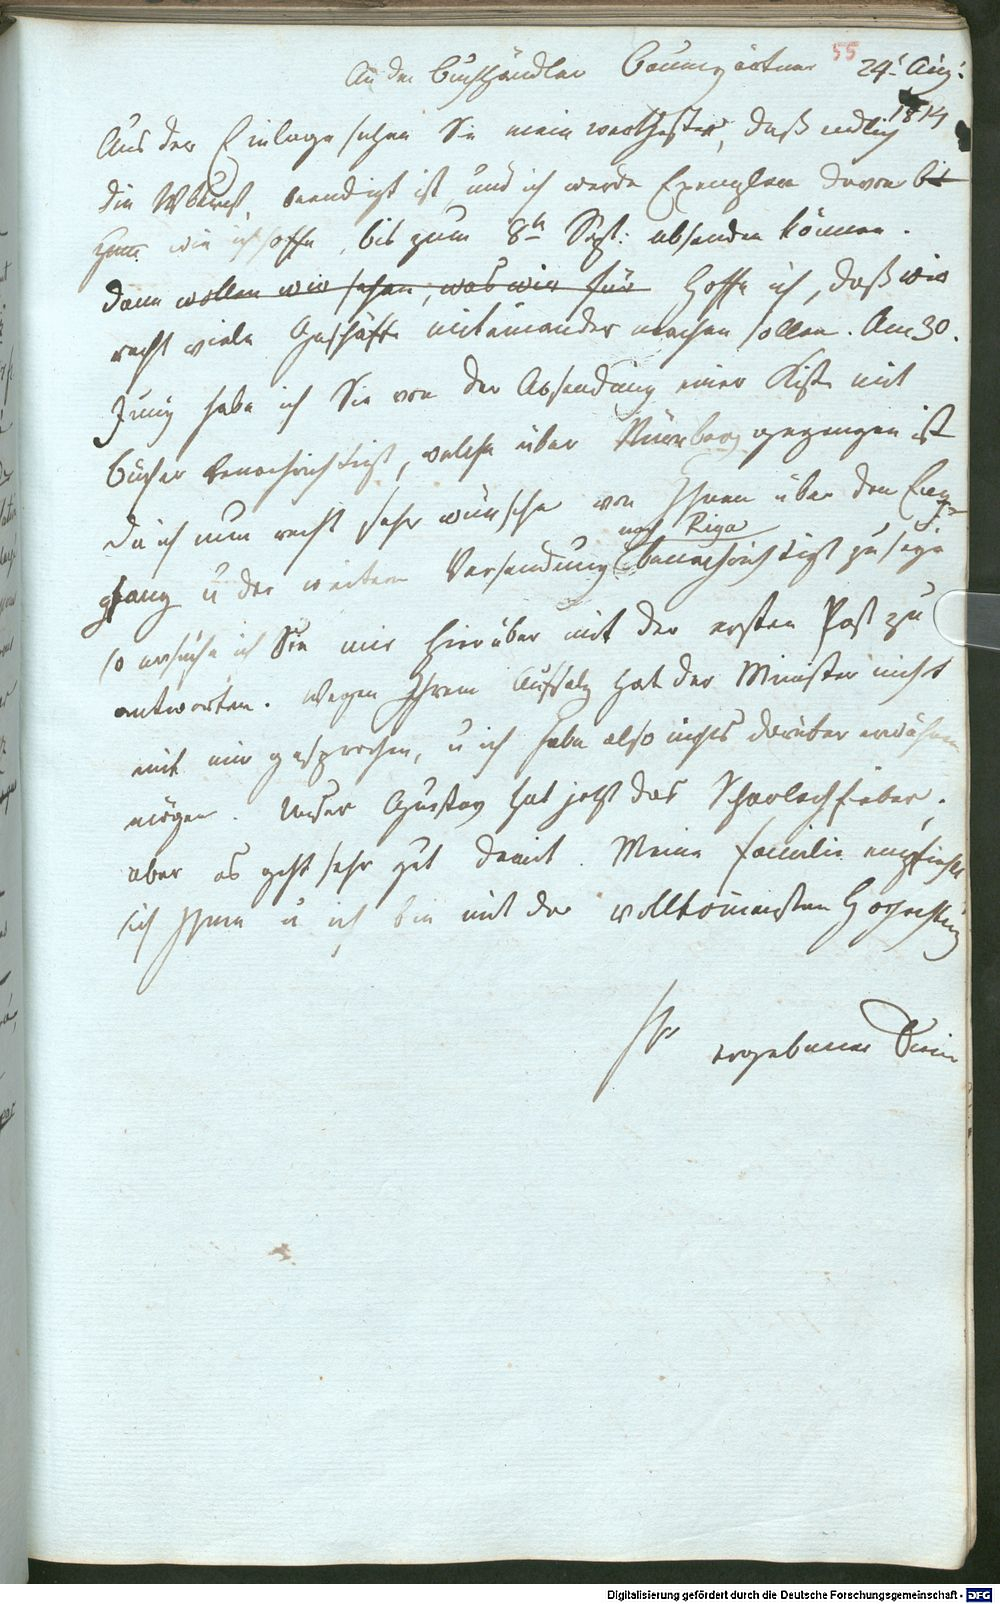 55
An den Buchhändler Baumgärtner 24t Aug:
1814
Aus der Einlage sehen Sie mein werthester, daß endlich
die beendigt ist und ich werde Exemplare davon bis
zum wie ich hoffe, bis zum 8ten Sept: absenden können.
dann wollen wir sehen, was wir für Hoffe ich, daß wir
recht viele Geschäfte miteinander machen sollen. Am 30.
Juny habe ich Sie von der Absendung einer Kiste mit
Bücher benachrichtigt, welche über Nürnberg gegangen ist
da ich nun recht sehr wünsche von Ihnen über den Em-
nach Riga
pfang u der weitern Versendung benachrichtigt zu seyn
so ersuche ich Sie mir hierüber mit der ersten Post zu
antworten. Wegen Ihrem Aufsatz hat der Minister nicht
mit mir gesprochen, u ich habe also nichts darüber erwähnen
mögen. Unser Gustav hat jetzt das Scharlachfieber,
aber es geht sehr gut damit. Meine Familie empfiehlt
sich Ihnen u ich bin mit der vollkommensten Hochachtung
Ihr ergebener
Digitalisierung gefördert durch die Deutsche Forschungsgemeinschaft - DFG